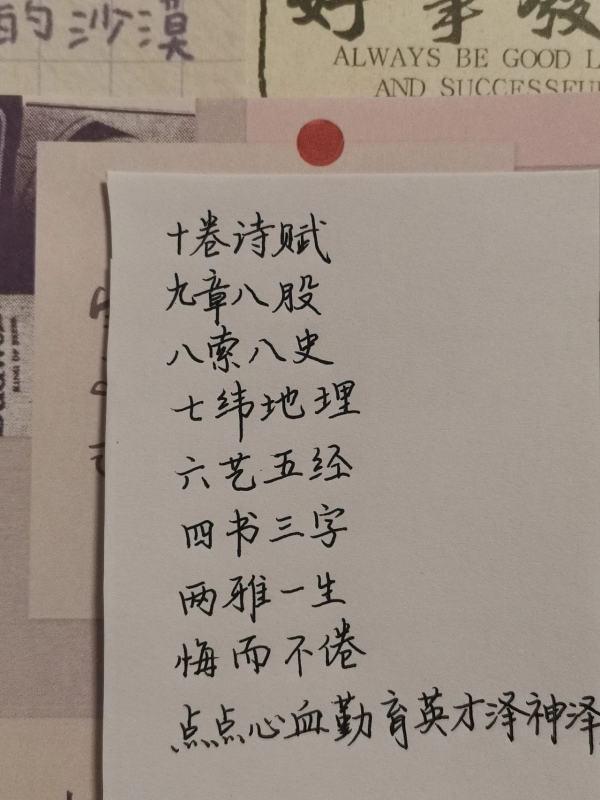 的沙漠
好事
ALWAYS BE GOOD
AND SUCCESSFU
十卷诗赋
九章八股
八索八史
七纬地理
六艺五经
四书三字
两雅一生
悔而不倦
点点心血勤育英才泽神泽